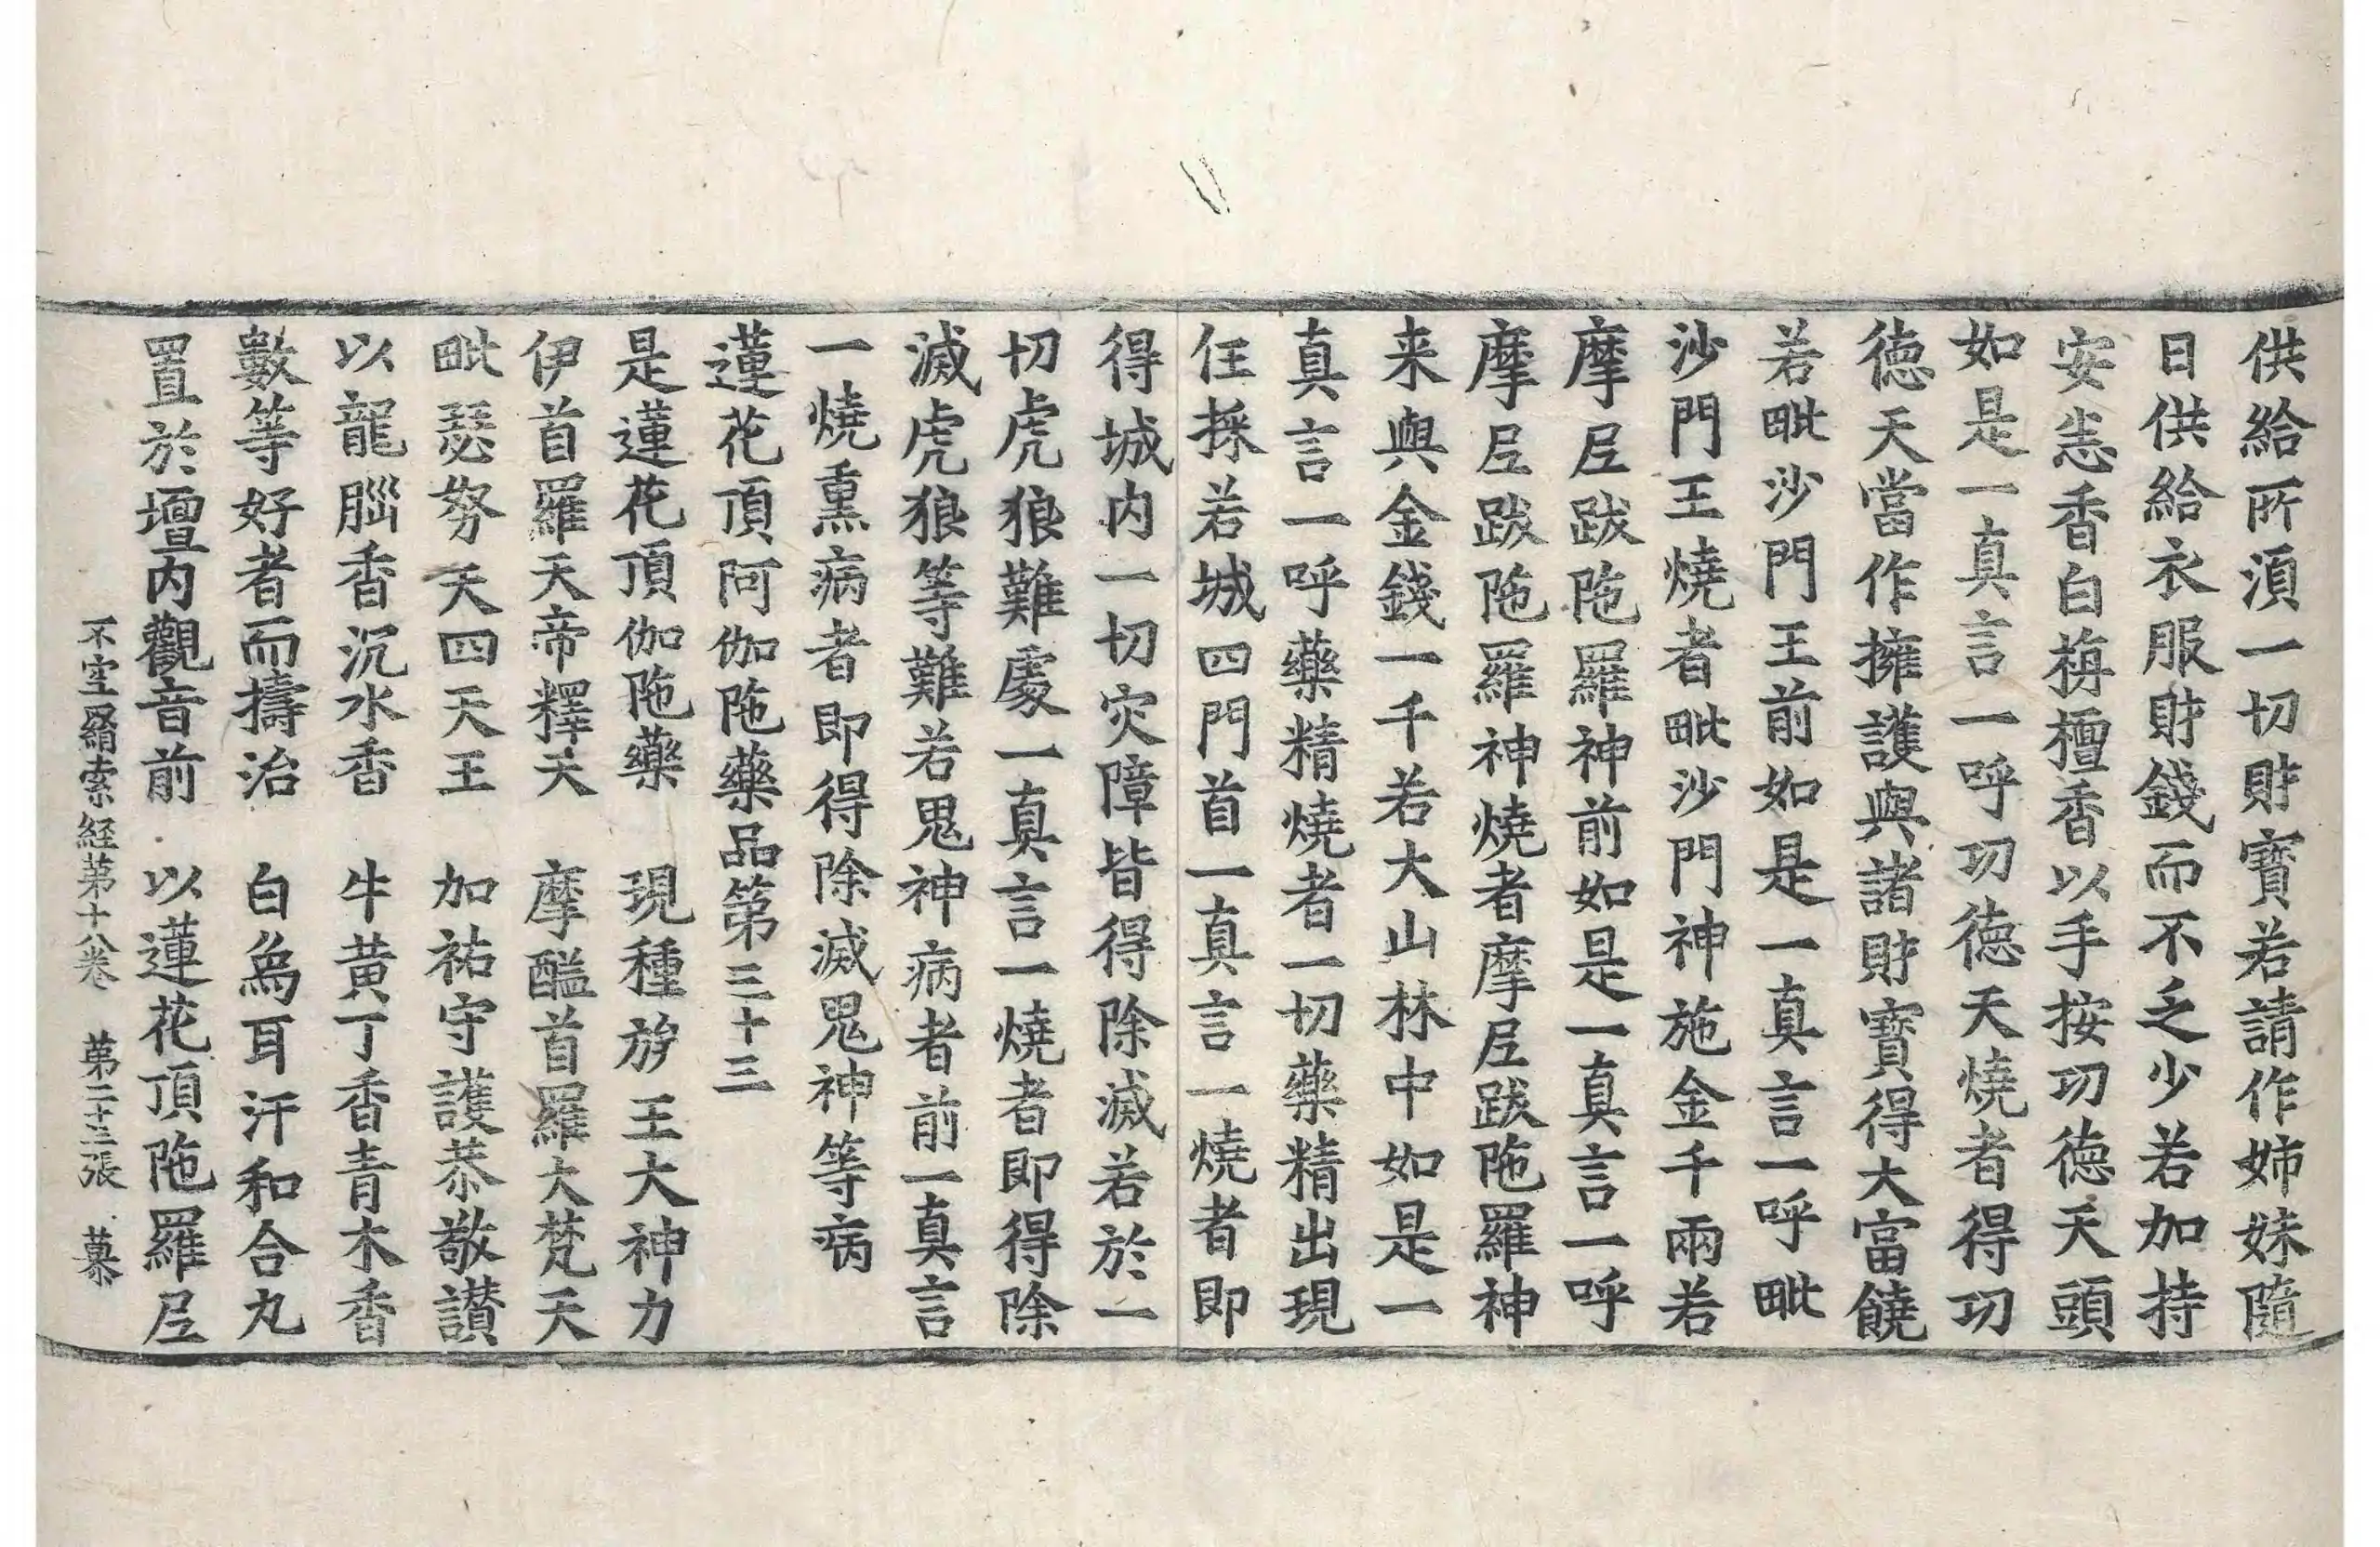 供給所湏一切財寶若請作姉妹隨
日供給衣服財錢而不乏少若加持
安悉香白栴檀香以手按功德天頭
如是一真言一呼功德天燒者得功
德天當作擁護與諸財寶得大富饒
若毗沙門王前如是一真言一呼毗
沙門王燒者毗沙門神施金千兩若
摩尼跋陁羅神前如是一真言一呼
摩尼跋陁羅神燒者摩尼跋陁羅神
来與金錢一千若大山林中如是一
真言一呼藥精燒者一切藥精出現
任採若城四門首一真言一燒者即
得城内一切灾障皆得除滅若於一
切虎狼難處一真言一燒者即得除
滅虎狼等難若鬼神病者前一真言
一燒熏病者即得除滅鬼神等病
蓮花頂阿伽陁藥品第三十三
是蓮花頂伽陁藥　現種族王大神力
伊首羅天帝釋天　摩醯首羅大梵天
毗瑟努天四天王　加祐守護恭敬讃
以龍腦香沉水香　牛黄丁香青木香
數等好者而擣治　白烏耳汗和合丸
置於壇内觀音前　以蓮花頂陁羅尼
不空羂索経苐十八卷　苐二十三張　慕